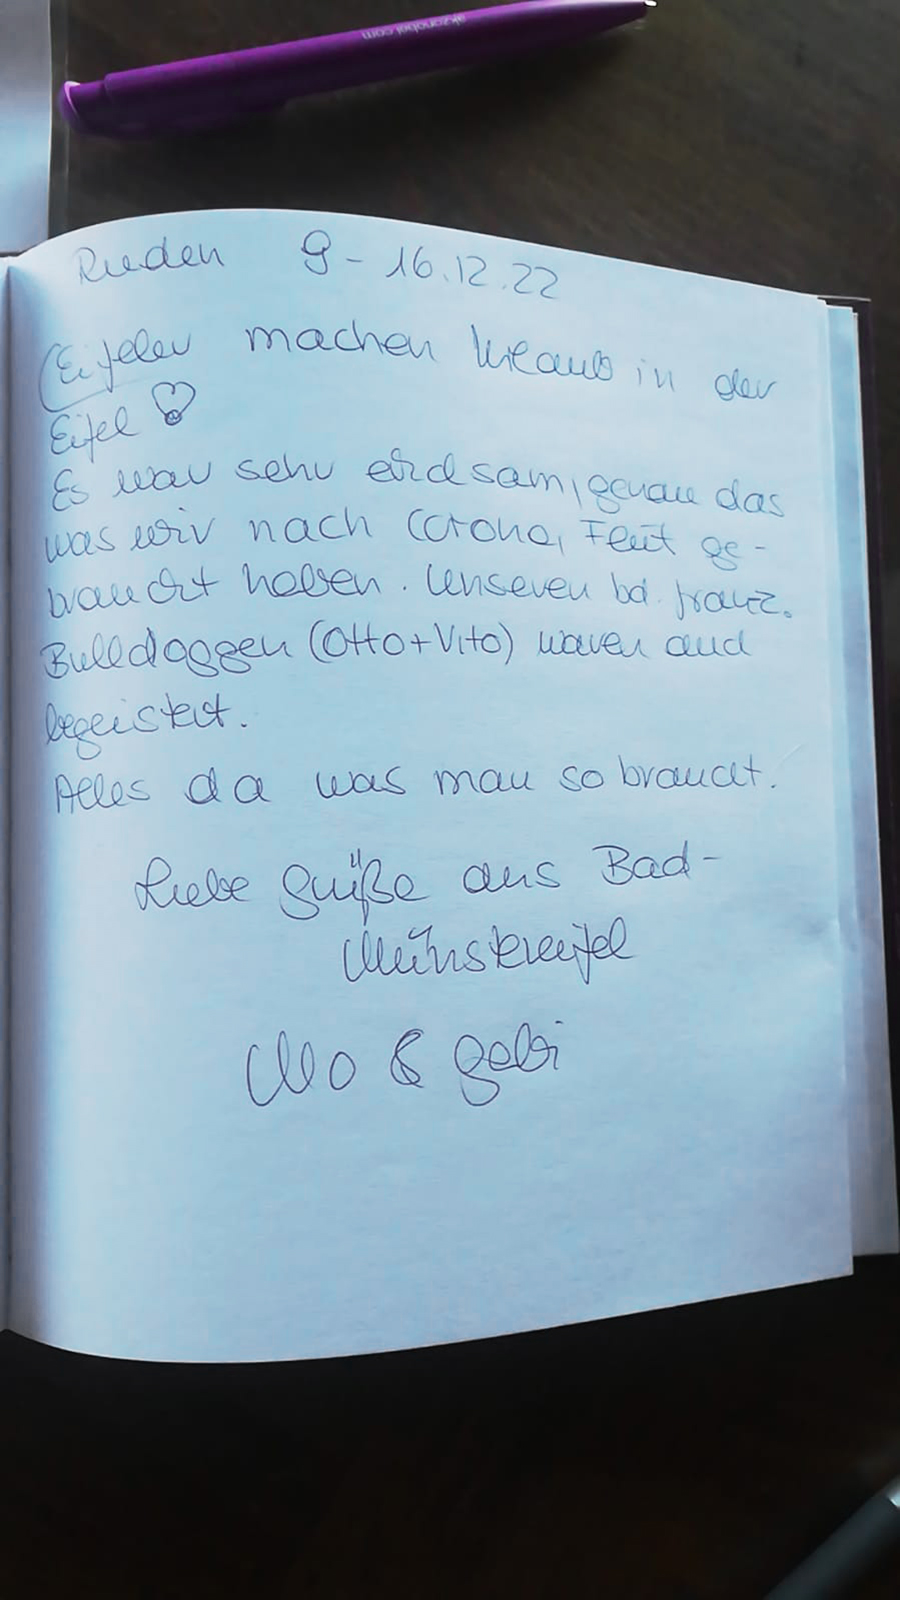 akzonobel.com
Rieden 9 - 16.12.22
Eifeler machen Urlaub in der
Eifel
Es war sehr erholsam, genau das
was wir nach Corona, Flut ge-
braucht haben. Unseren bd. franz.
Bulldoggen (Otto+Vito) waren auch
begeistert.
Alles da was man so braucht.
Liebe Grüße aus Bad-
Münstereifel
Mo & Gabi